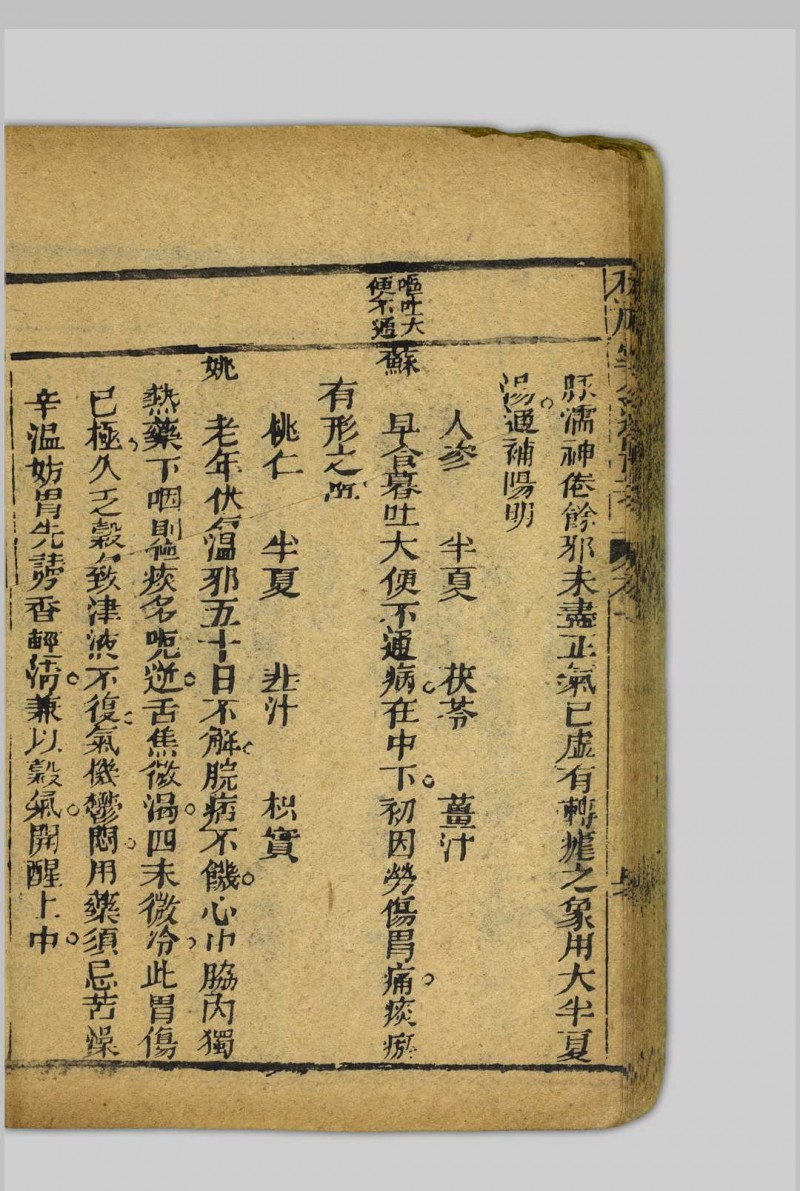 脈濡神倦餘邪未盡正氣已虛有轉瘧之象用大半夏
湯通補陽明
人參 半夏 茯苓 薑汁
嘔吐大
便不通
蘇 早食暮吐大便不通病在中下初因勞傷胃痛痰瘀
有形之阻
桃仁 半夏 韭汁 枳實
姚 老年伏溫邪五十日不解脘痞不饑心巾脇內獨
熱藥下咽則痰名呃逆舌焦微渴四末微冷此胃傷
已極久乏穀氣致津液不復氣機鬱悶用藥須忌苦燥
辛温妨胃先謗香輕清兼以穀氣開醒上中